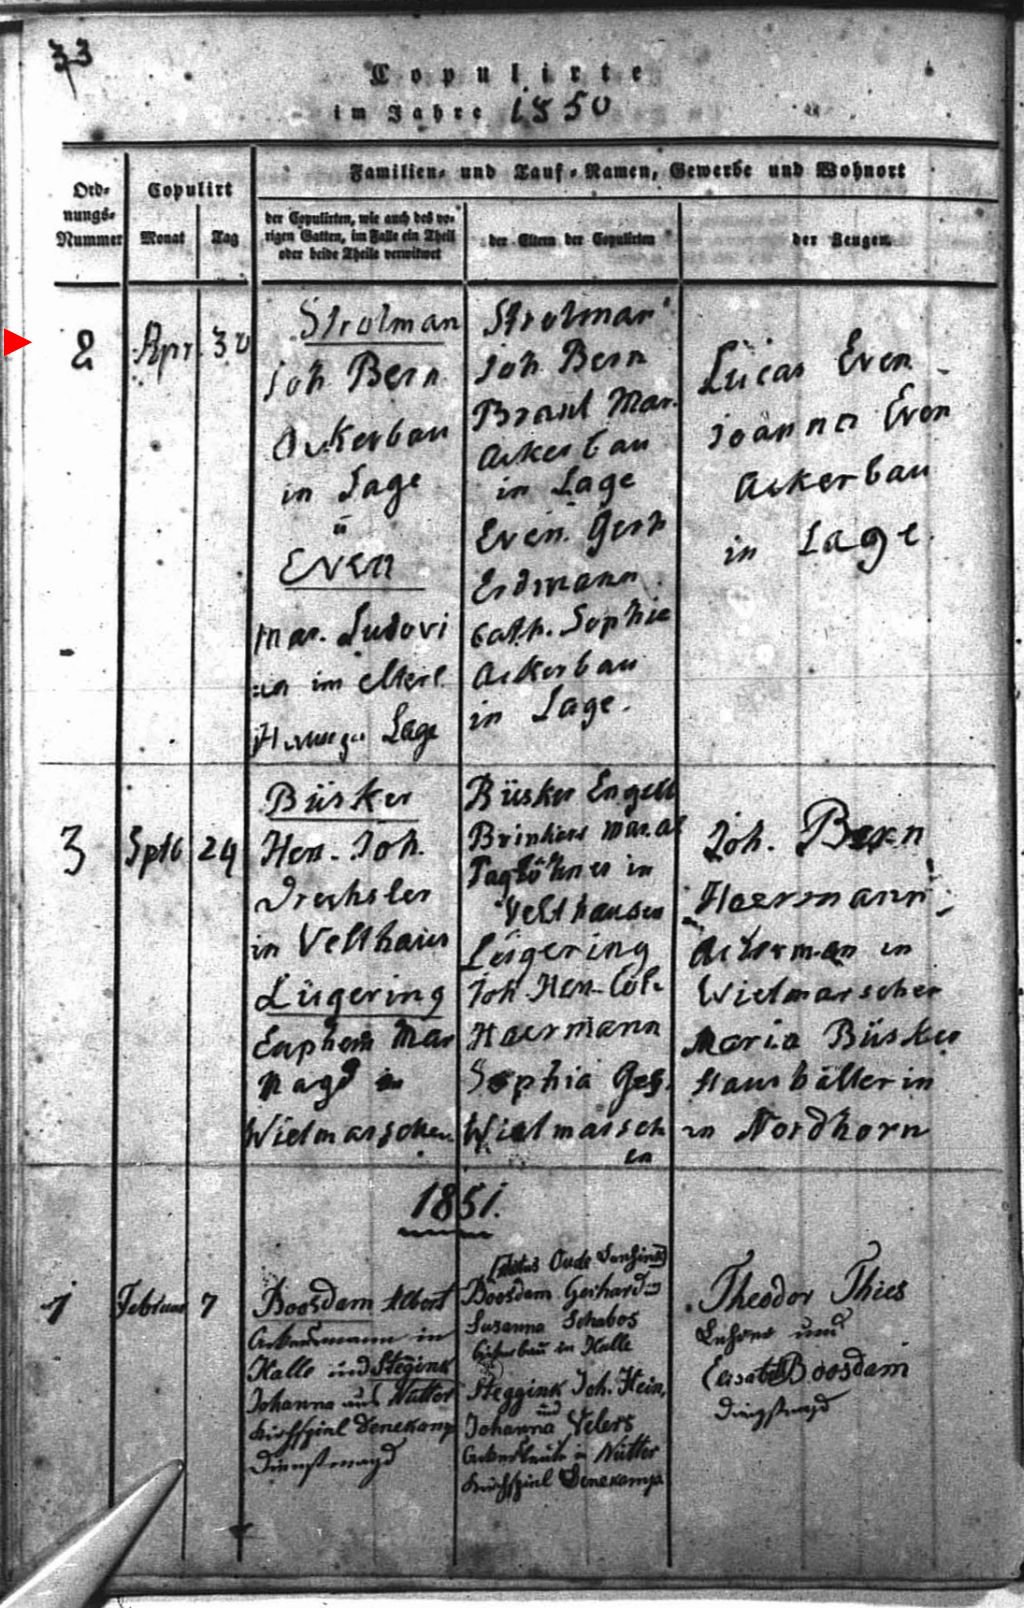 33
Copulirte
im Jahre 1850
Ord-
nungs-
Nummer
Copulirt
Monat
Tag
Familien- und Tauf-Namen, Gewerbe und Wohnort
der Copulirten, wie auch des vo-
rigen Gatten, im Falle ein Theil
oder beide Theile verwitwet
der Eltern der Copulirten
der Zeugen
2
Apr
30
Strotman
Joh Bern
Ackerbau
in Lage
u
Even
Mar. Ludovi
im elterl.
Lage
Strotman
Joh Bern
Mar.
Ackerbau
in Lage
Even Gerh
Erdmann
Cath. Sophie
Ackerbau
in Lage.
Lucas Even
Joanna Even
Ackerbau
in Lage.
3
Septb
24
Büsker
Herr. Joh.
Drechsler
in Velthaus
Lügering
Euphem Mar
Magd in
Wietmarschen
Büsker Engelb
Brinkers Mar. Al
Taglöhner in
Velthausen
Lügering
Joh. Herr. Col.
Haermann
Sophia Ges.
Wietmarsch
en
Joh. Bern
Haermann,
Ackerman in
Wietmarschen
Maria Büsker
Haushälterin
in Nordhorn
1851.
1
Februar
7
Boosdam Albert
Ackersmann in
Halle und Stegink
Johanna aus Nutter
Kirchspiel Denekamp
Dienstmagd
Oude
Boosdam Gerhard
Susanna Schabos
Ackerbau in Halle
Steggink Joh. Hein,
und
Johanna Velers
Ackersleute in Nütter
Kirchspiel Denekamp
Theodor Thies
Lehrer und
Elisabeth Boosdam
Dienstmagd